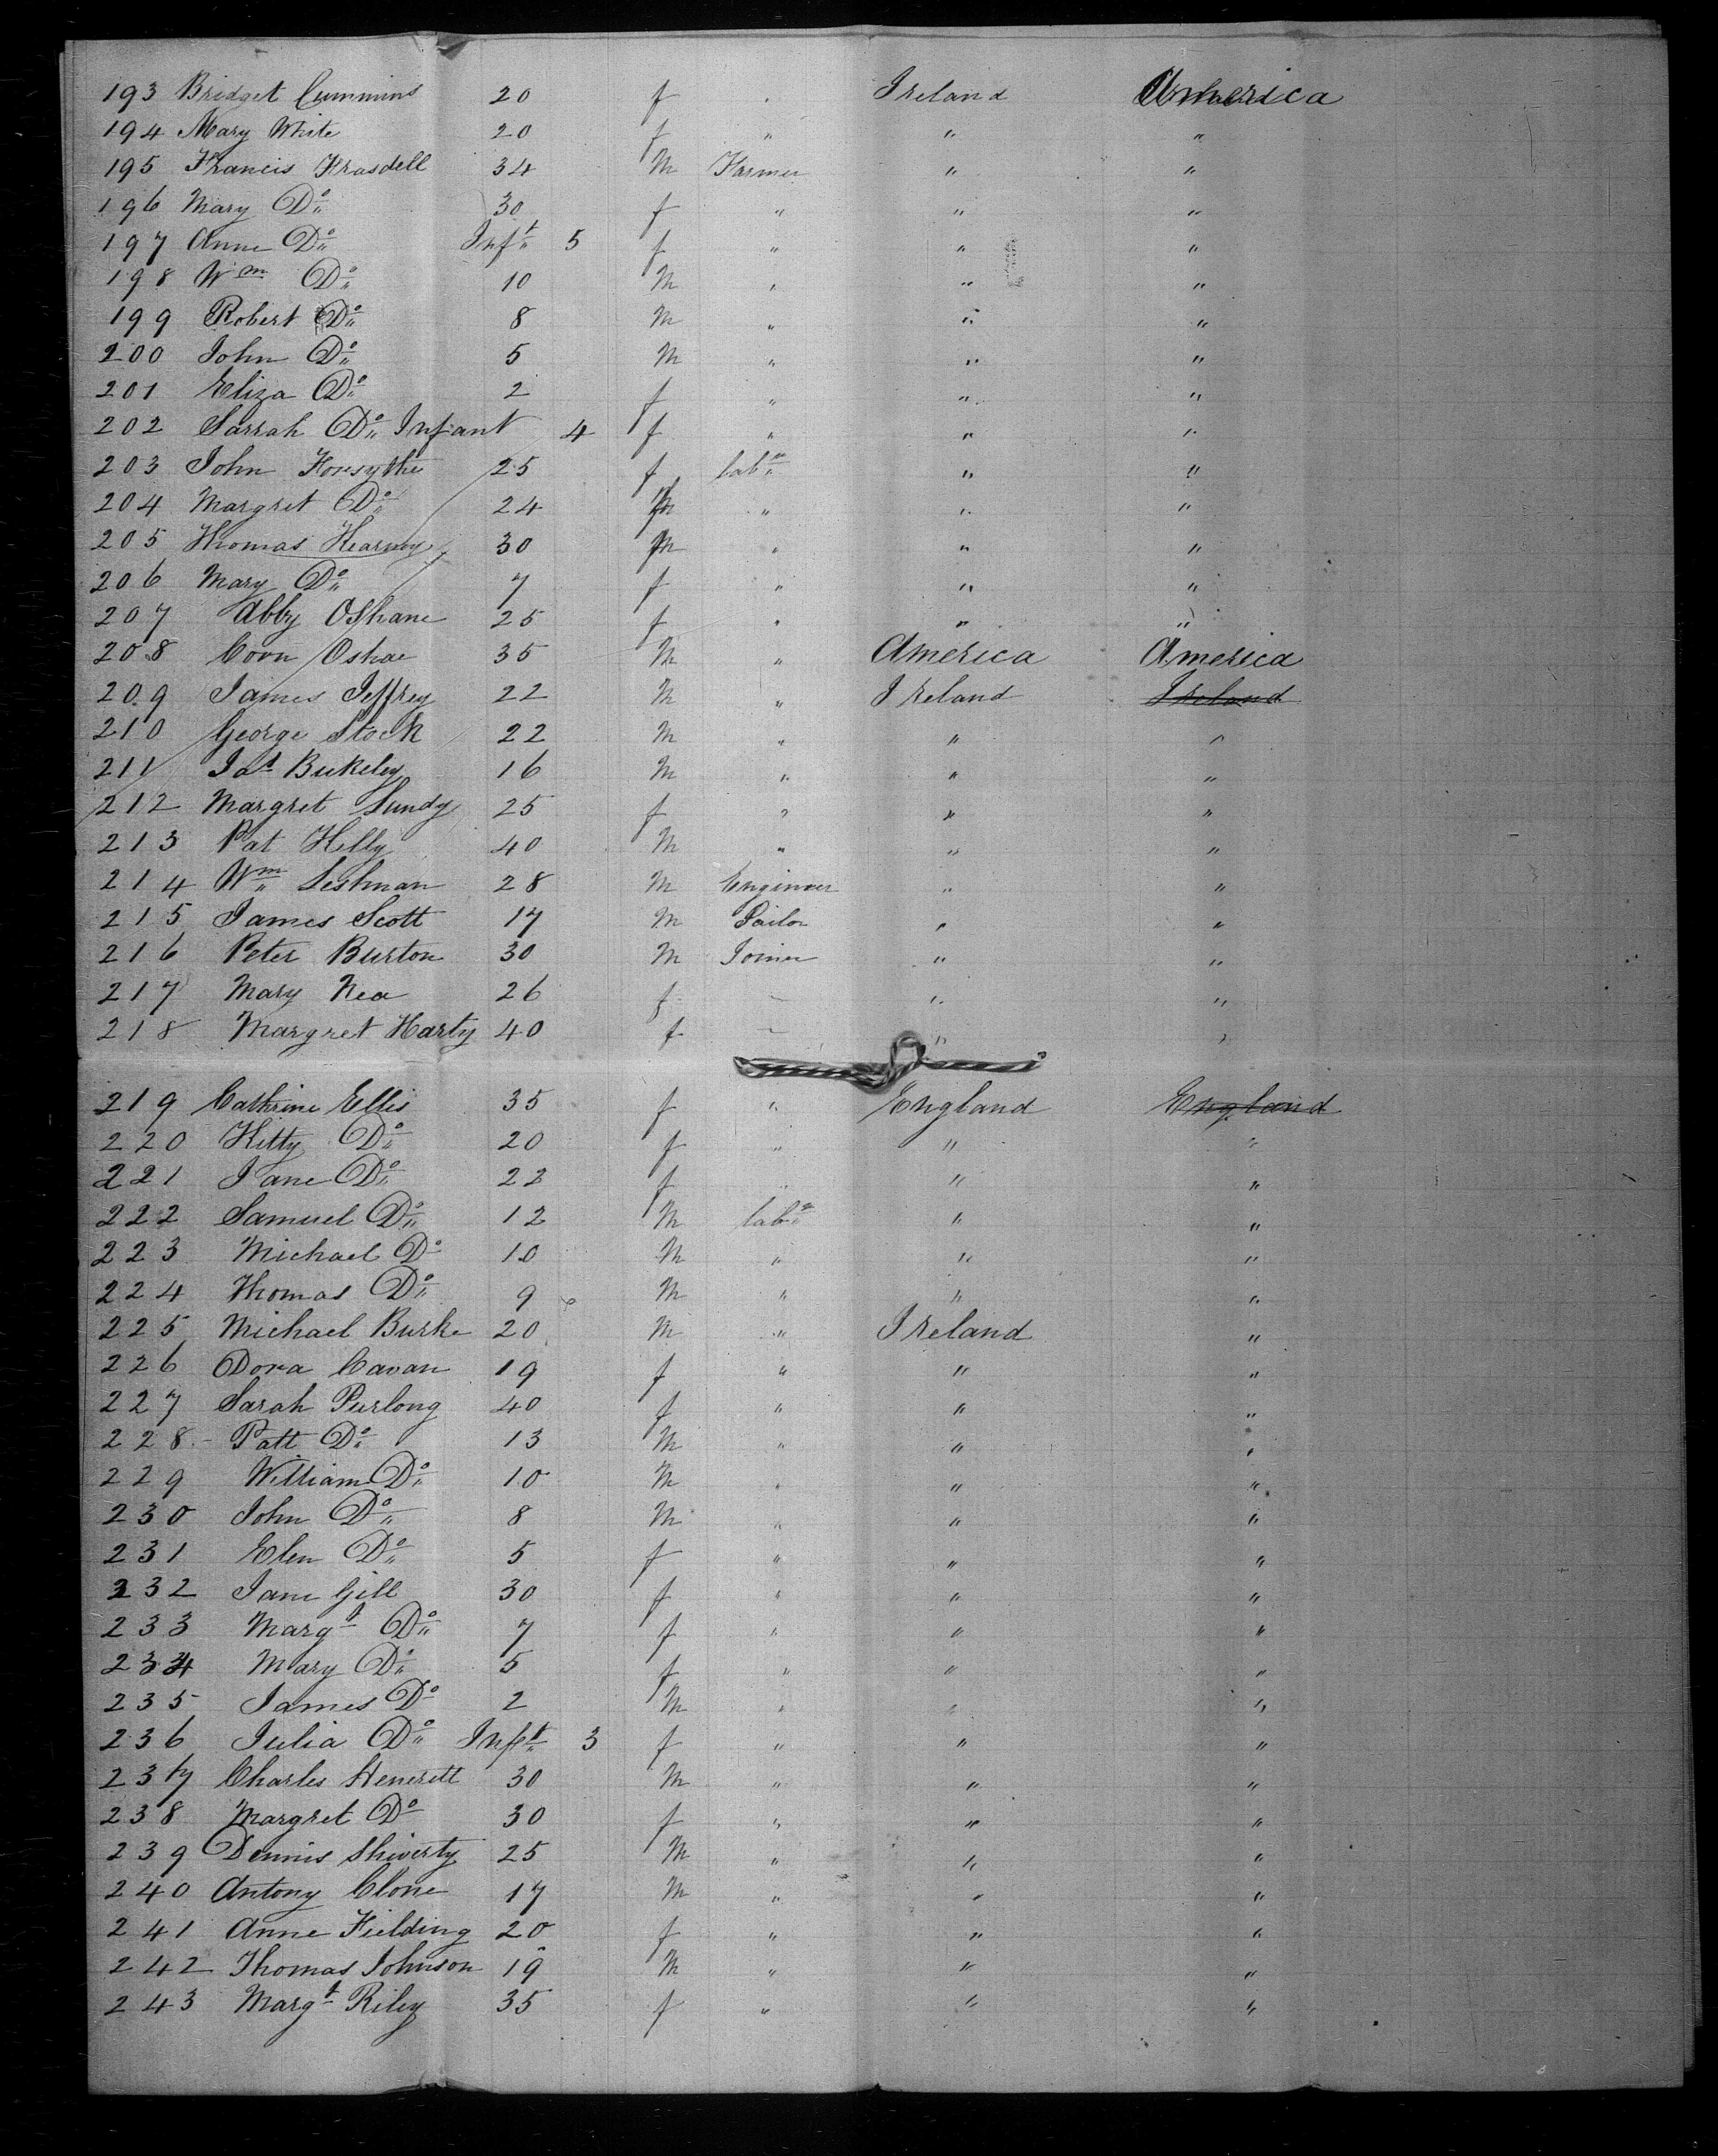 193 Bridget Cummins 20 f " Ireland America
194 Mary White 20 f " " "
195 Francis Frasdell 34 M Farmer " "
196 Mary Do 30 f " " "
197 Anne Do Inft 5 f " " "
198 Wm Do 10 M " " "
199 Robert Do 8 M " " "
200 John Do 5 M " " "
201 Eliza Do 2 f " " "
202 Sarrah Do Infant 4 f " " "
203 John Forsythe 25 f labr " "
204 Margret Do 24 " " "
205 Thomas Kearney 30 M " " "
206 Mary Do 7 f " " "
207 Abby OShane 25 f " " "
208 Corn Oshae 35 M " America America
209 James Jeffrey 22 M " Ireland Ireland
210 George Stock 22 M " " "
211 Jas Bukeley 16 M " " "
212 Margret Lundy 25 f " " "
213 Pat Kelly 40 M " " "
214 Wm Leshman 28 M Engineer " "
215 James Scott 17 M Sailor " "
216 Peter Burton 30 M Joiner " "
217 Mary Nea 26 f " " "
218 Margret Harty 40 f " " "
219 Cathrine Ellis 35 f " England England
220 Kitty Do 20 f " " "
221 Jane Do 22 f " " "
222 Samuel Do 12 M labr " "
223 Michael Do 10 M " " "
224 Thomas Do 9 M " " "
225 Michael Burke 20 M " Ireland "
226 Dora Cavan 19 f " " "
227 Sarah Purlong 40 f " " "
228 Patt Do 13 M " " "
229 William Do 10 M " " "
230 John Do 8 M " " "
231 Elen Do 5 f " " "
232 Jane Gill 30 f " " "
233 Margt Do 7 f " " "
234 Mary Do 5 f " " "
235 James Do 2 M " " "
236 Julia Do Inft 3 f " " "
237 Charles Henerett 30 M " " "
238 Margret Do 30 f " " "
239 Dennis Shiverty 25 M " " "
240 Antony Clone 17 M " " "
241 Anne Fielding 20 f " " "
242 Thomas Johnson 19 M " " "
243 Margt Riley 35 f " " "